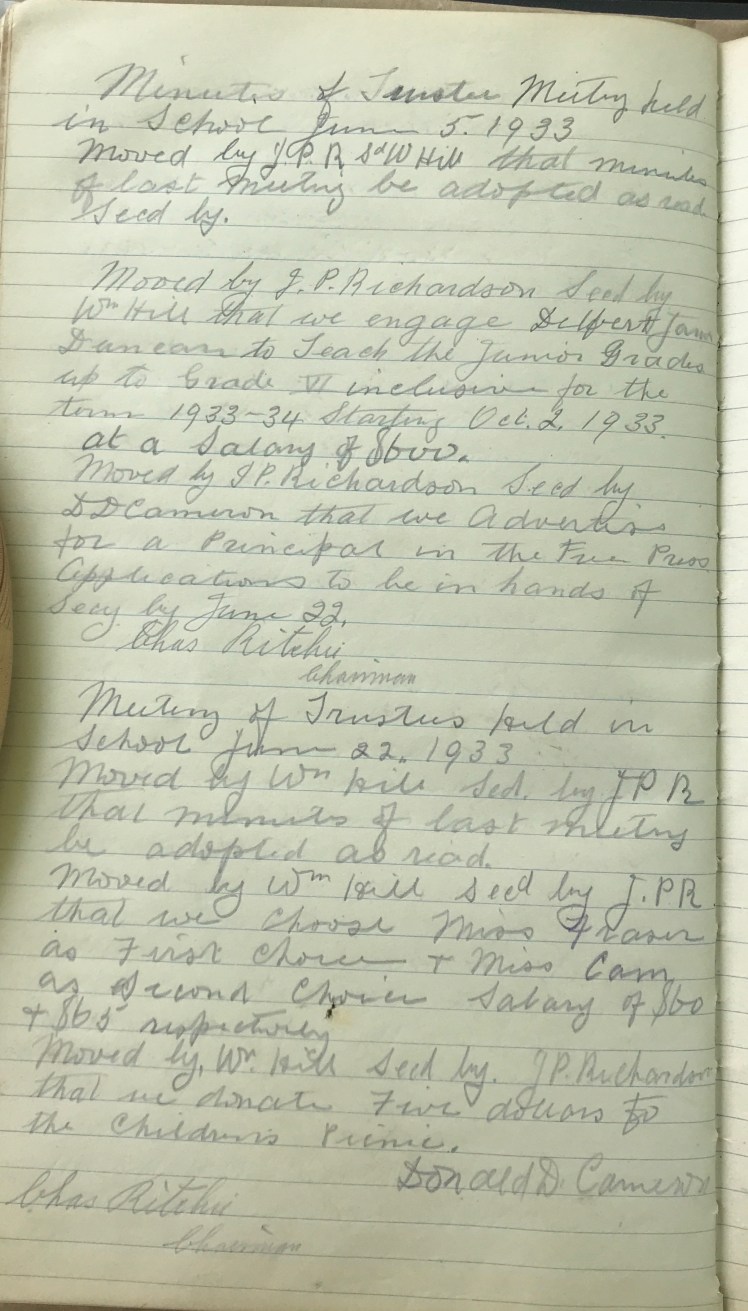 Minutes of Trustee Meeting held
in School June 5. 1933
Moved by J.P.R Sd W Hill that minutes
of last Meeting be adopted as read
Secd by.
Moved by J. P. Richardson Secd by
Wm Hill that we engage Delbert James
Duncan to Teach the Junior Grades
up to Grade VI inclusive for the
term 1933-34 Starting Oct. 2. 1933.
at a Salary of $600.
Moved by J P. Richardson Secd by
D D Cameron that we Advertise
for a Principal in the Free Press
Applications to be in hands of
Secy by June 22.
Chas Ritchie
Chairman
Meeting of Trustees Held in
School June 22. 1933
Moved by Wm Hill Sed. by J P R
that minutes of last meeting
be adopted as read.
Moved by Wm Hill Secd by J. P R
that we choose Miss Fraser
as First choice + Miss Cam
as Second Choice Salary of $60
+ $65 respectively
Moved by, Wm. Hill Secd by. J P. Richardson
that we donate Five dollars to
the Childrens Picnic.
Donald D. Cameron
Chas Ritchie
Chairman